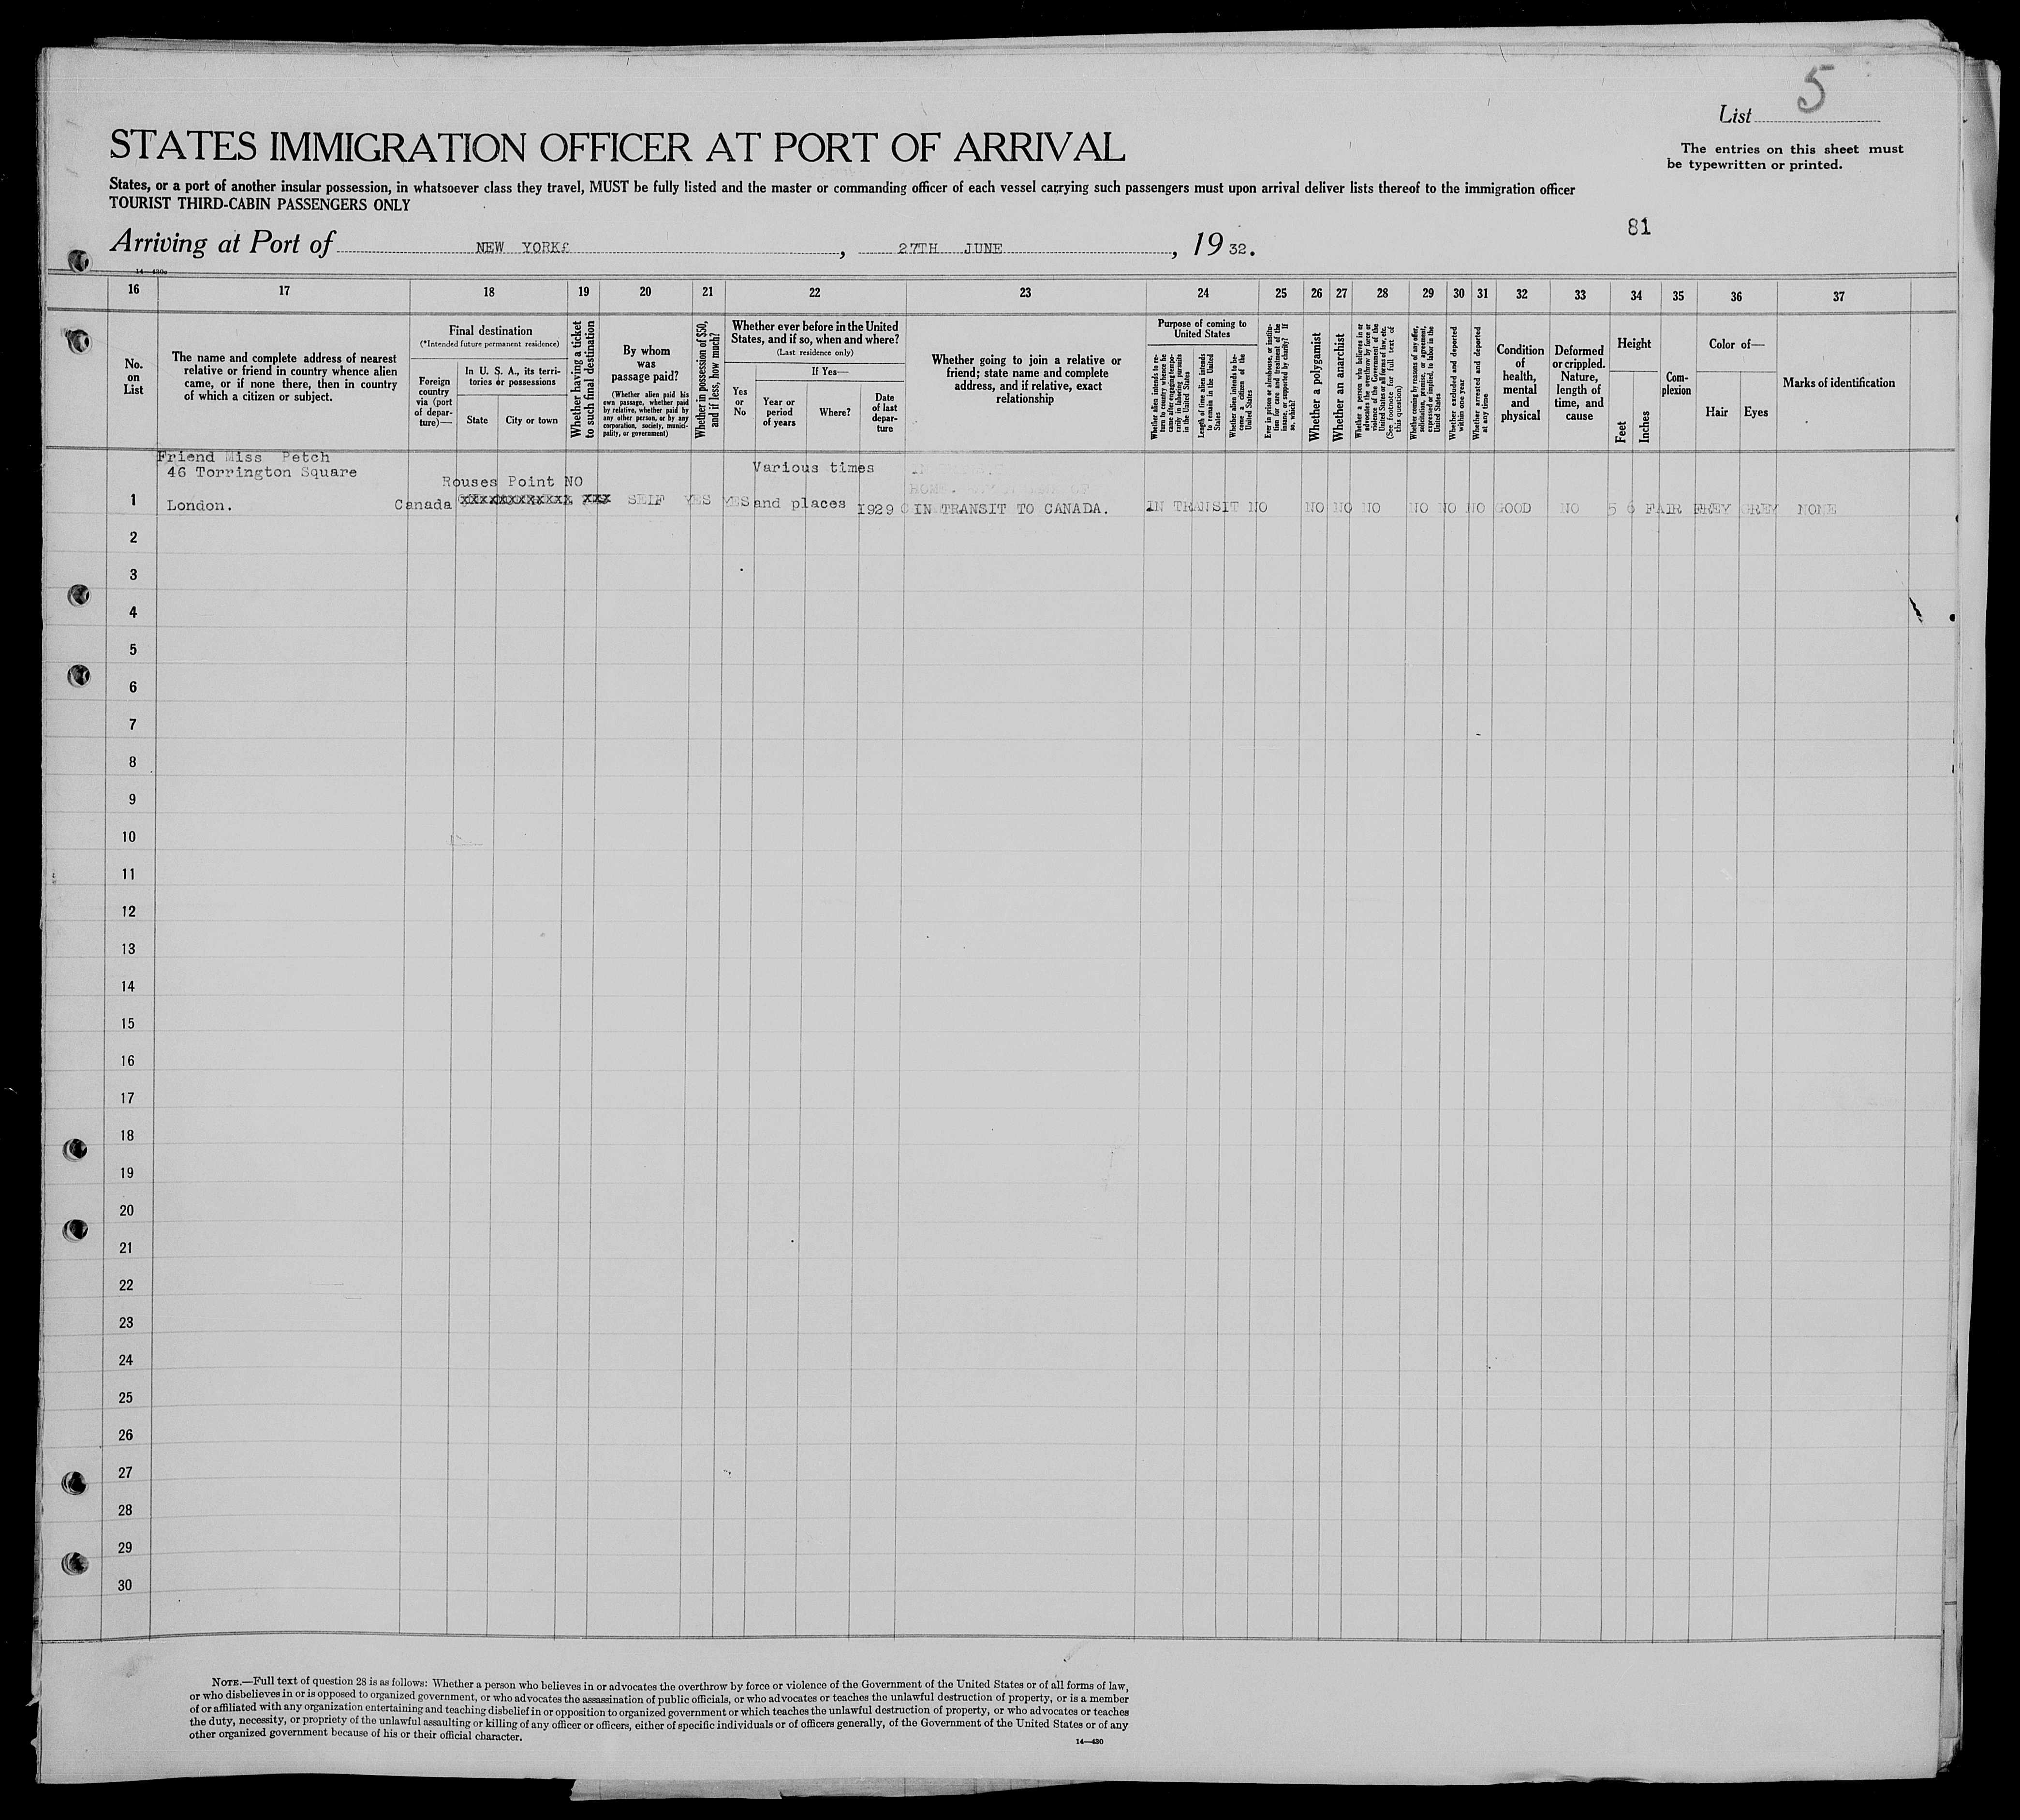 List 5
STATES IMMIGRATION OFFICER AT PORT OF ARRIVAL
The entries on this sheet must
be typewritten or printed.
States, or a port of another insular possession, in whatsoever class they travel, MUST be fully listed and the master or commanding officer of each vessel carrying such passengers must upon arrival deliver lists thereof to the immigration officer
TOURIST THIRD-CABIN PASSENGERS ONLY
81
Arriving at Port of NEW YORK£, 27TH JUNE, 1932.
14—430a
16 17 18 19 20 21 22 23 24 25 26 27 28 29 30 31 32 33 34 35 36 37
No.
on
List
The name and complete address of nearest
relative or friend in country whence alien
came, or if none there, then in country
of which a citizen or subject.
Final destination
(*Intended future permanent residence)
Foreign
country
via (port
of depar-
ture)—
In U. S. A., its terri-
tories or possessions
State
City or town
Whether having a ticket
to such final destination
By whom
was
passage paid?
(Whether alien paid his
own passage, whether paid
by relative, whether paid by
any other person, or by any
corporation, society, munici-
pality, or government)
Whether in possession of $50,
and if less, how much?
Whether ever before in the United
States, and if so, when and where?
(Last residence only)
Yes
or
No
If Yes—
Year or
period
of years
Where?
Date
of last
depar-
ture
Whether going to join a relative or
friend; state name and complete
address, and if relative, exact
relationship
Purpose of coming to
United States
Whether alien intends to re-
turn to country whence he
came after engaging tempo-
rarily in laboring pursuits
in the United States
Length of time alien intends
to remain in the United
States
Whether alien intends to be-
come a citizen of the
United States
Ever in prison or almshouse, or institu-
tion for care and treatment of the
insane, or supported by charity? If
so, which?
Whether a polygamist
Whether an anarchist
Whether a person who believes in or
advocates the overthrow by force or
violence of the Government of the
United States or all forms of law, etc.
(See footnote for full text of
this question)
Whether coming by reasons of any offer,
solicitation, promise, or agreement,
expressed or implied, to labor in the
United States
Whether excluded and deported
within one year
Whether arrested and deported
at any time
Condition
of
health,
mental
and
physical
Deformed
or crippled.
Nature,
length of
time, and
cause
Height
Feet
Inches
Com-
plexion
Color of—
Hair
Eyes
Marks of identification
Friend Miss Petch
46 Torrington Square
Various times
Rouses Point NO
HOME.
1 London. Canada SELF YES YES and places 1929 IN TRANSIT TO CANADA. IN TRANSIT NO NO NO NO NO NO NO GOOD NO 5 6 FAIR GREY NONE
2
3
4
5
6
7
8
9
10
11
12
13
14
15
16
17
18
19
20
21
22
23
24
25
26
27
28
29
30
NOTE.—Full text of question 28 is as follows: Whether a person who believes in or advocates the overthrow by force or violence of the Government of the United States or of all forms of law,
or who disbelieves in or is opposed to organized government, or who advocates the assassination of public officials, or who advocates or teaches the unlawful destruction of property, or is a member
of or affiliated with any organization entertaining and teaching disbelief in or opposition to organized government or which teaches the unlawful destruction of property, or who advocates or teaches
the duty, necessity, or propriety of the unlawful assaulting or killing of any officer or officers, either of specific individuals or of officers generally, of the Government of the United States or of any
other organized government because of his or their official character.
14—430